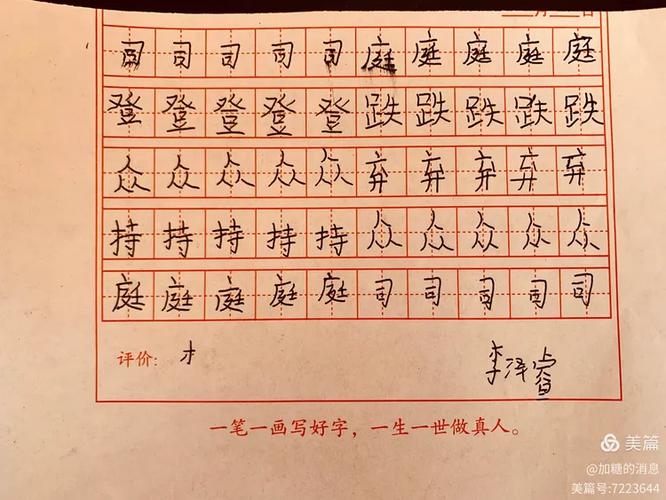 司司司司司庭庭庭庭庭
登登登登登跌跌跌跌跌
众众众众众弃弃弃弃弃
持持持持持众众众众众
庭庭庭庭庭司司司司司
评价: 才 李泽睿
一笔一画写好字，一生一世做真人。
美篇
@加糖的消息
美篇号:7223644